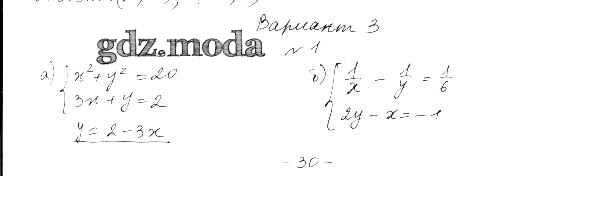 Вариант 3
gdz.moda
№1
а) { x² + y² = 20
3x + y = 2
y = 2 - 3x
б) { 1/x - 1/y = 1/6
2y - x = -1
- 30 -